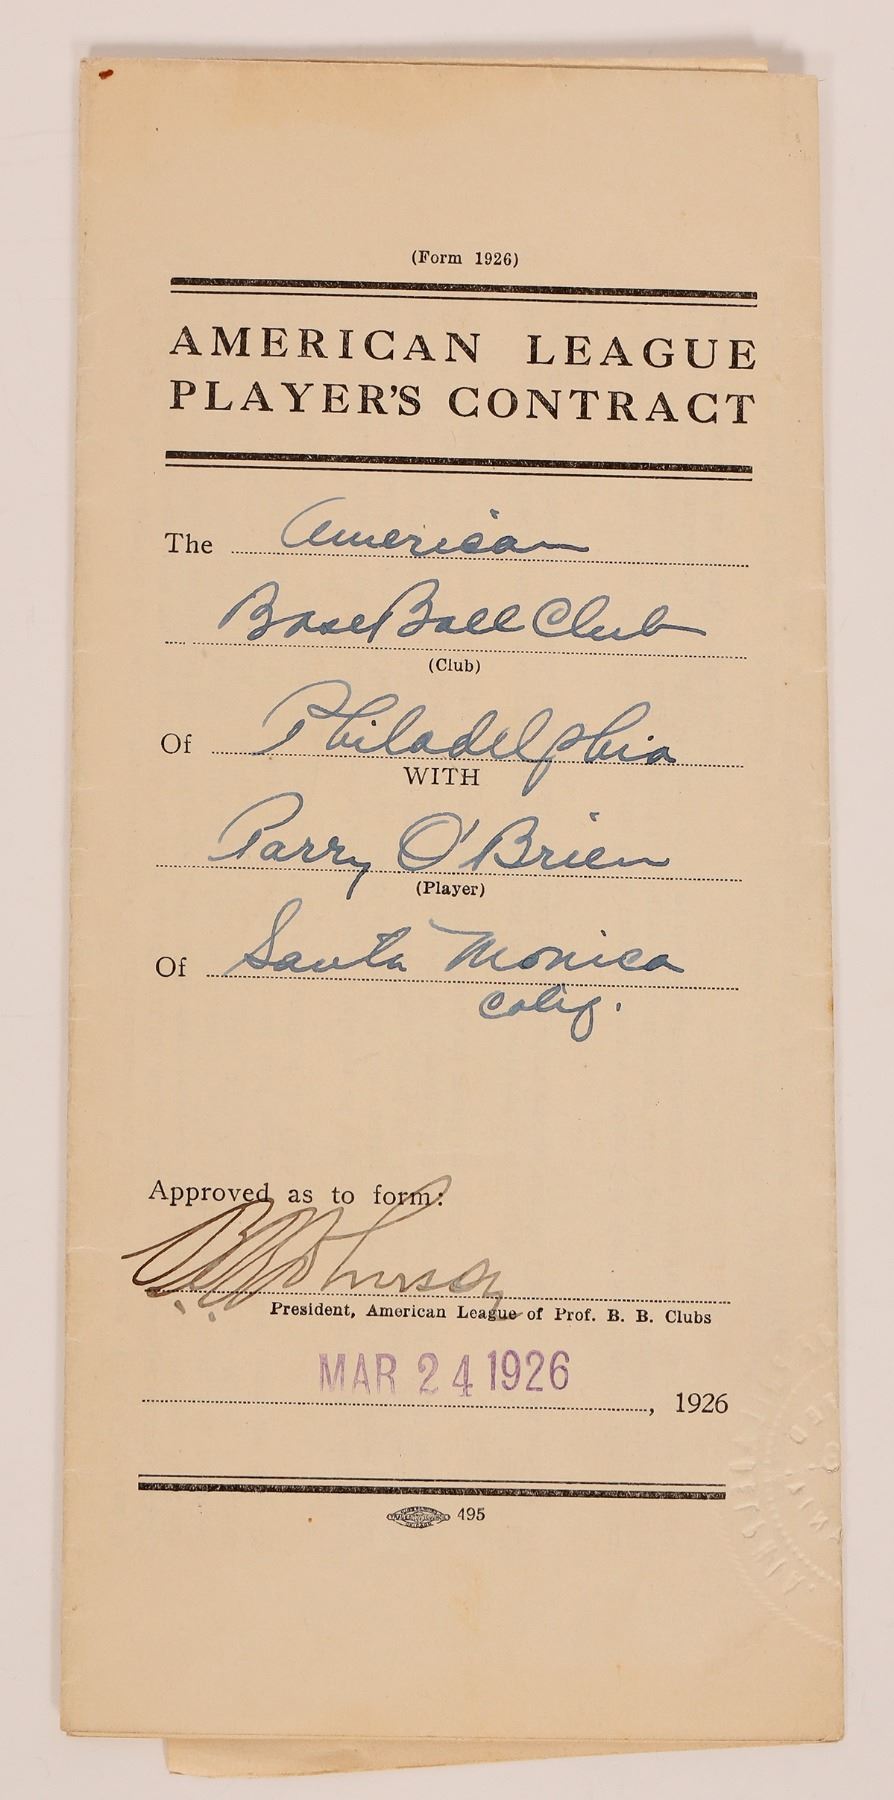 (Form 1926)
AMERICAN LEAGUE
PLAYER'S CONTRACT
The American
Base Ball Club
(Club)
Of Philadelphia
WITH
Parry O'Brien
(Player)
Of Santa Monica
Calif.
Approved as to form:
B B Johnson
President, American League of Prof. B. B. Clubs
MAR 24 1926
, 1926
495